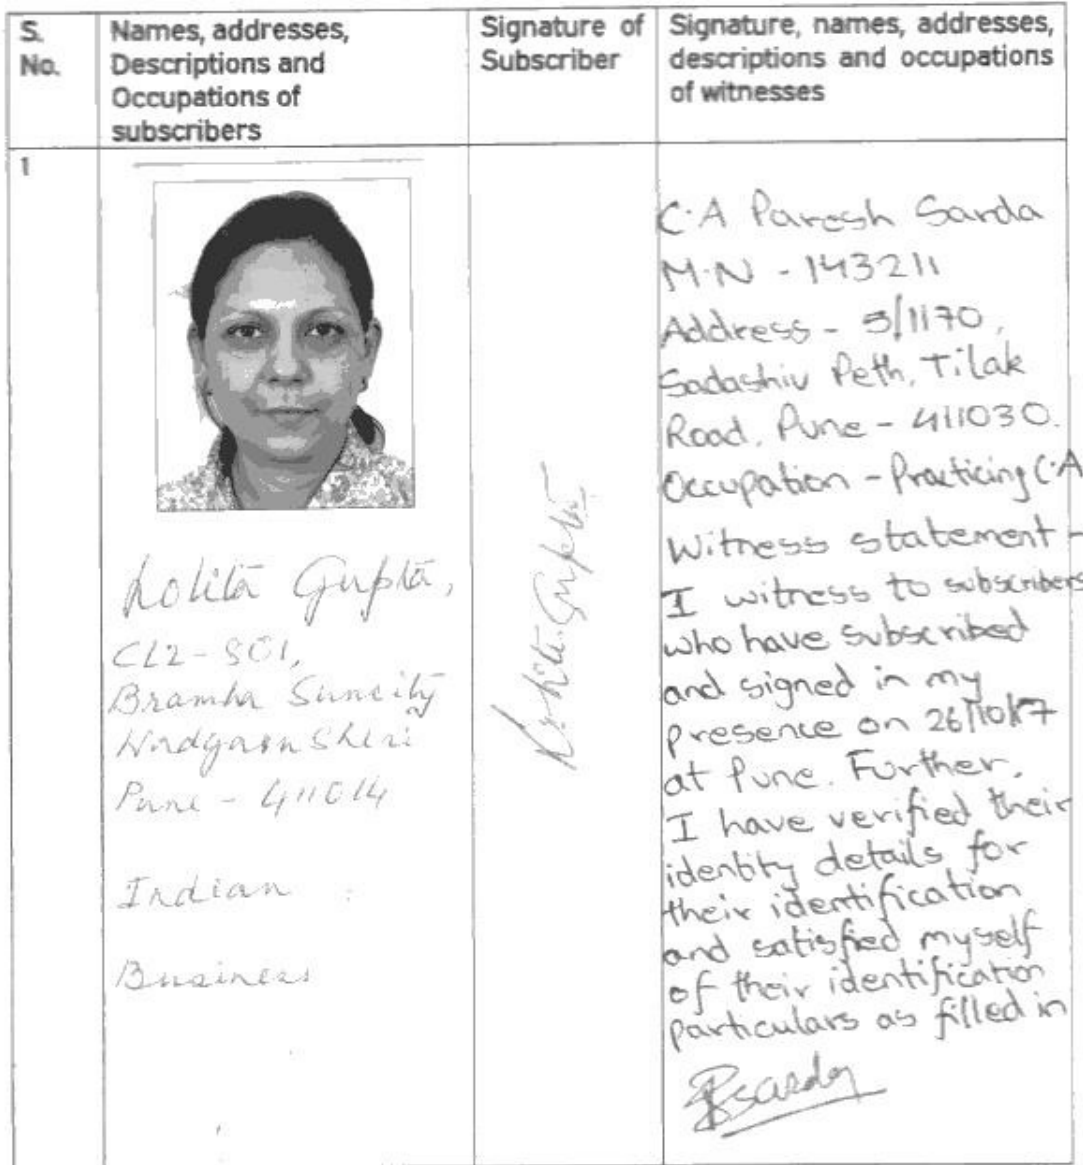 S. No.
Names, addresses, Descriptions and Occupations of subscribers
Signature of Subscriber
Signature, names, addresses, descriptions and occupations of witnesses
1
Lolita Gupta,
CL2-801,
Bramha Suncity
Wadgaon Sheri
Pune - 411014
Indian
Business
Lolita Gupta
C.A Paresh Sarda
M.N - 143211
Address - 5/1170,
Sadashiv Peth, Tilak
Road, Pune - 411030.
Occupation - Practicing C.A
Witness statement -
I witness to subscribers
who have subscribed
and signed in my
presence on 26/10/17
at Pune. Further,
I have verified their
identity details for
their identification
and satisfied myself
of their identification
particulars as filled in
PSarda